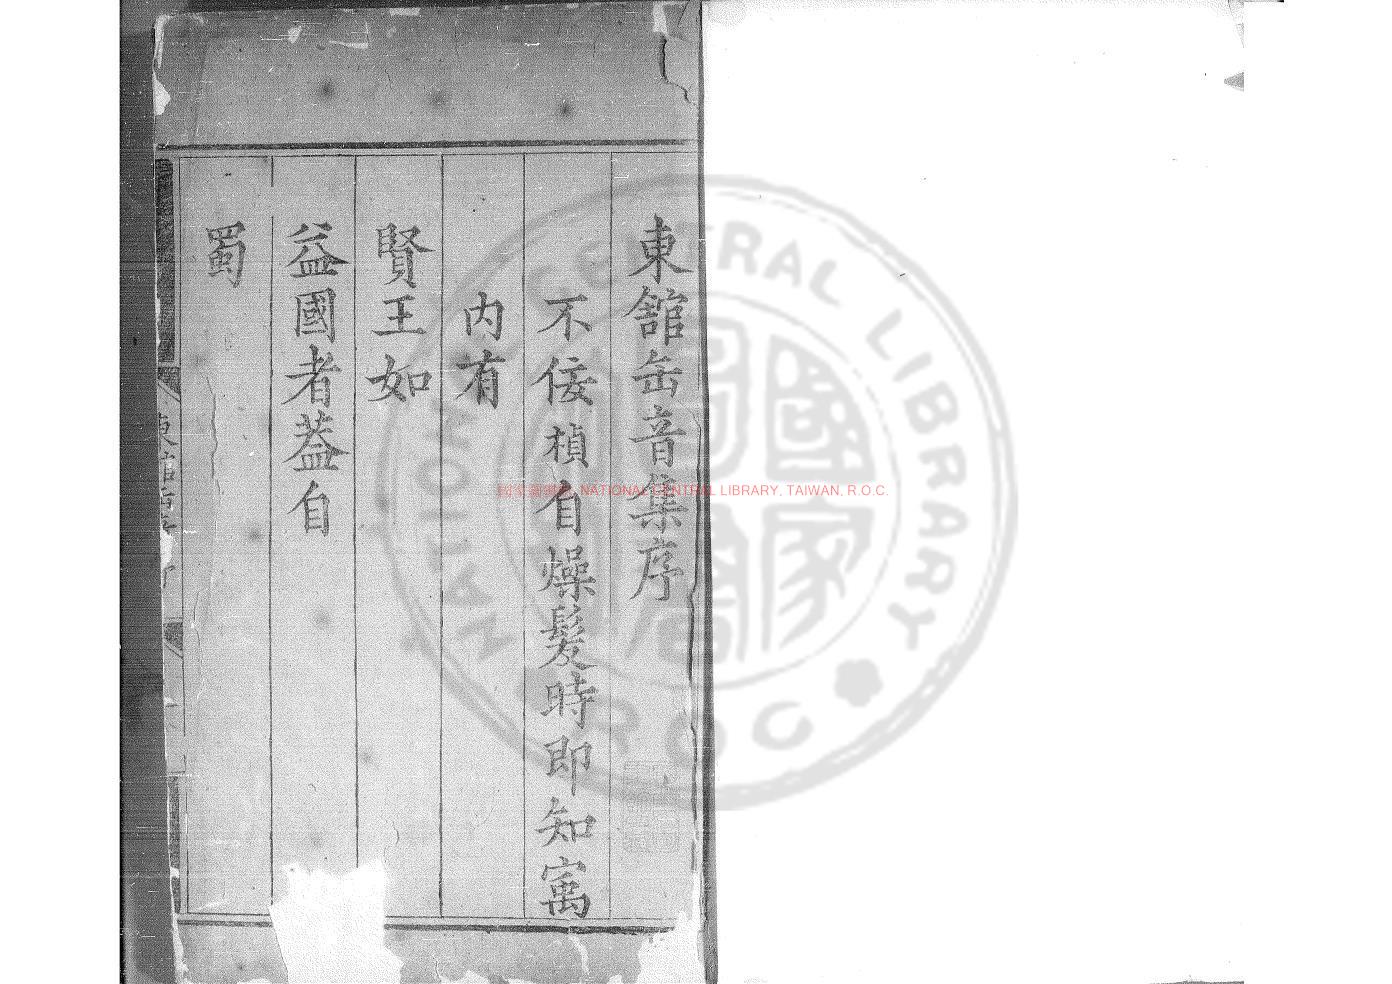 東舘缶音集序
不佞楨自燥髮時即知寓
内有
賢王如
益國者蓋自
蜀
NATIONAL CENTRAL LIBRARY, TAIWAN, R.O.C.
NATIONAL CENTRAL LIBRARY
R.O.C